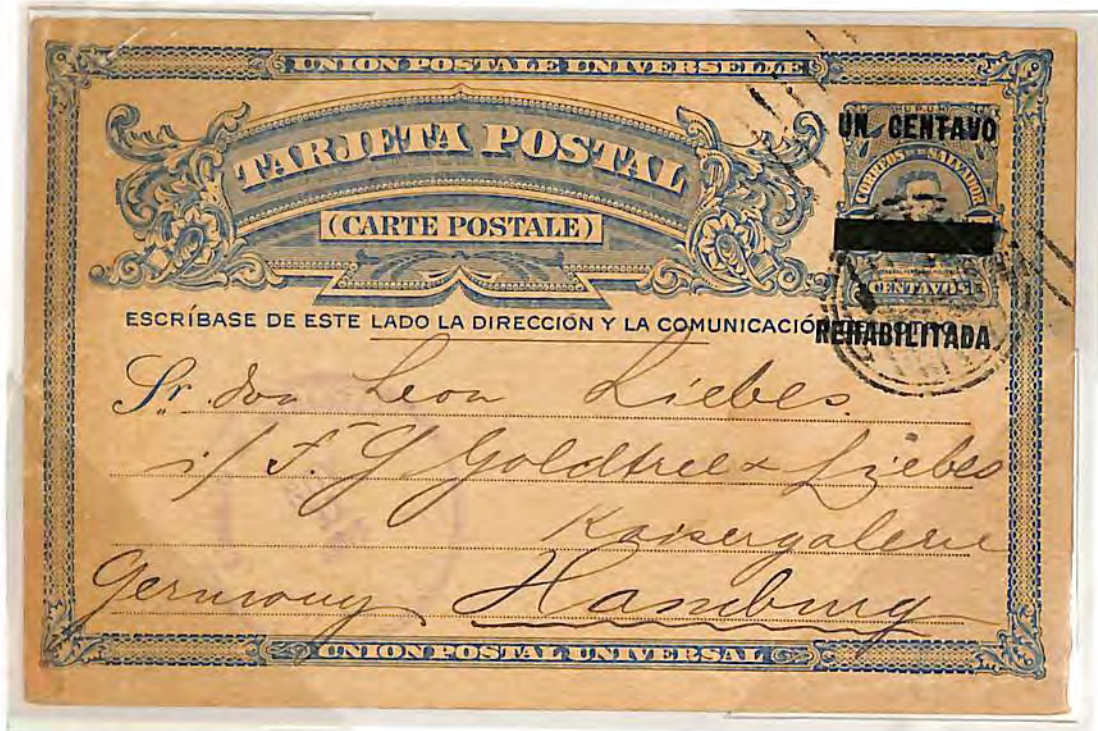 UNION POSTALE UNIVERSELLE
TARJETA POSTAL
(CARTE POSTALE)
UN CENTAVO
CORREOS DE EL SALVADOR
CENTAVOS
REHABILITADA
ESCRÍBASE DE ESTE LADO LA DIRECCIÓN Y LA COMUNICACIÓN
Sr. don Leon Liebes
F. G Goldtree & Liebes
Kaisergalerie
Germany Hamburg
UNION POSTAL UNIVERSAL